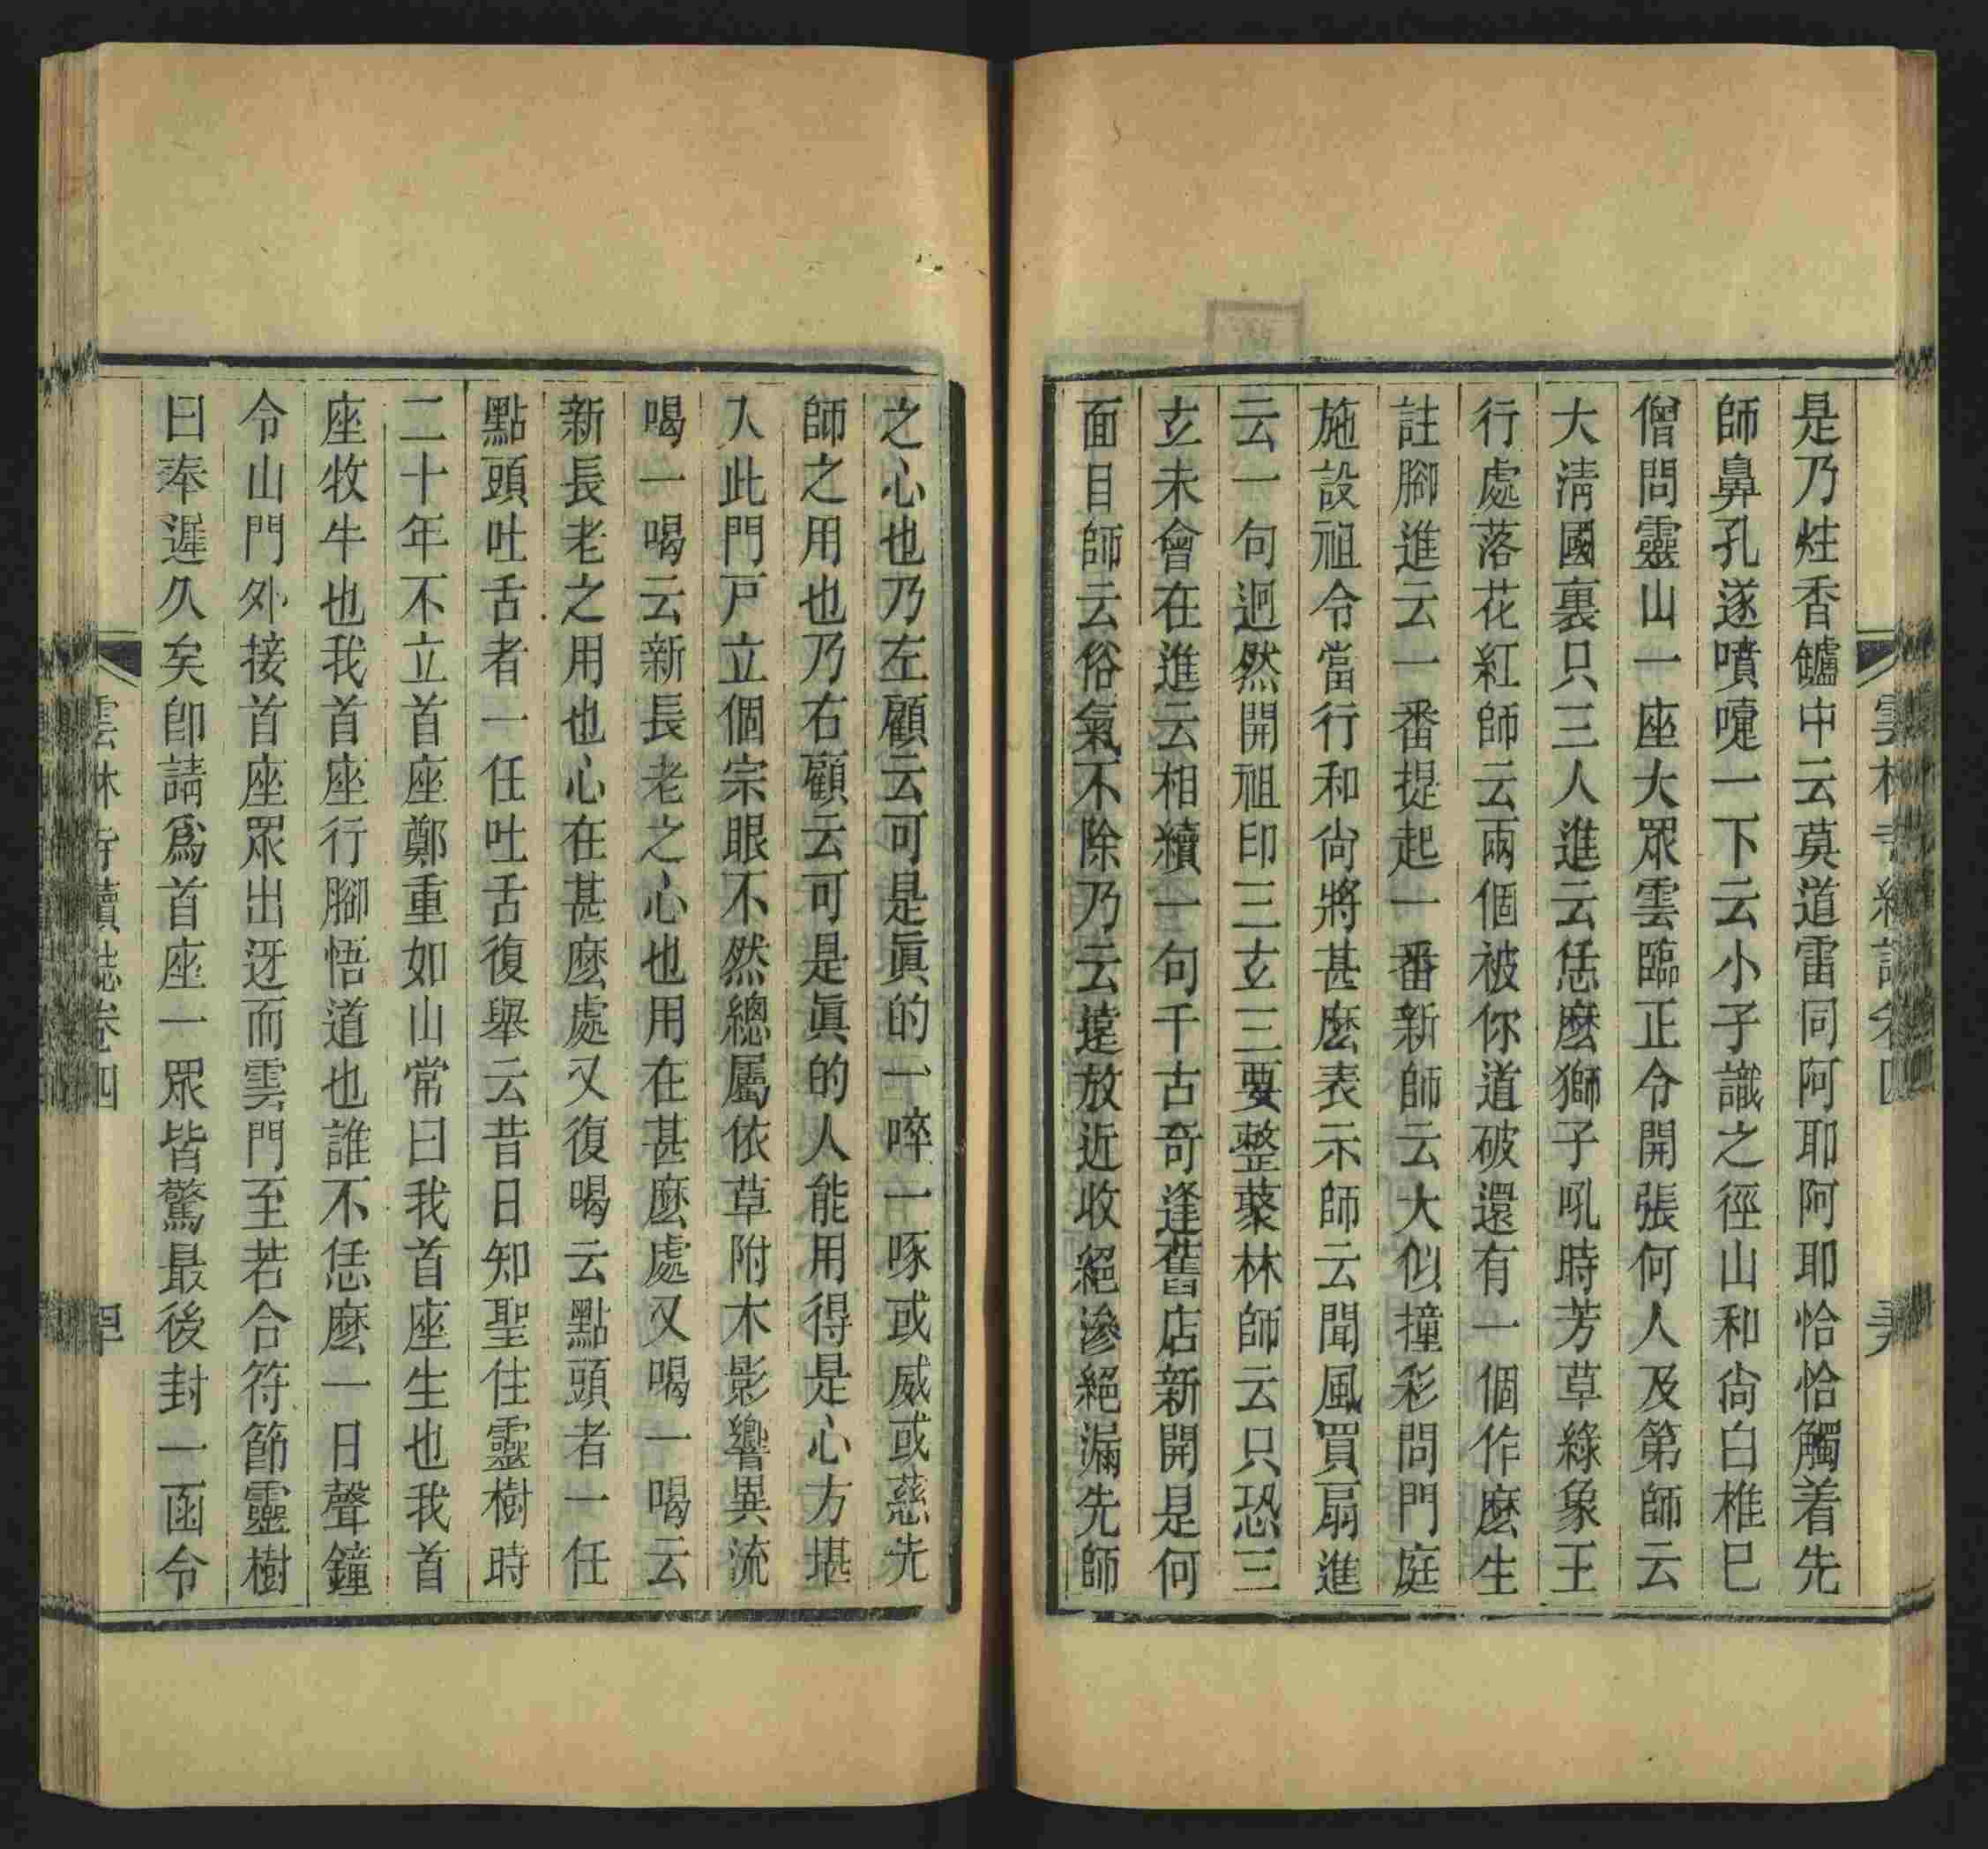 是乃炷香鑪中云莫道雷同阿耶阿耶恰恰觸着先
師鼻孔遂噴嚏一下云小子識之徑山和尙白椎巳
僧問靈山一座大眾雲臨正令開張何人及第師云
大淸國裏只三人進云恁麽獅子吼時芳草綠象王
行處落花紅師云兩個被你道破還有一個作麽生
註腳進云一番提起一番新師云大似撞彩問門庭
施設祖令當行和尙將甚麽表示師云聞風買扇進
云一句迥然開祖印三玄三要整藂林師云只恐三
玄未會在進云相續一句千古奇逢舊店新開是何
面目師云俗氣不除乃云遠放近收絕滲絕漏先師
之心也乃左顧云可是眞的一啐一啄或威或慈先
師之用也乃右顧云可是眞的人能用得是心方堪
入此門戸立個宗眼不然總屬依草附木影響異流
喝一喝云新長老之心也用在甚麽處又喝一喝云
新長老之用也心在甚麽處又復喝云點頭者一任
點頭吐舌者一任吐舌復舉云昔日知聖住靈樹時
二十年不立首座鄭重如山常曰我首座生也我首
座牧牛也我首座行腳悟道也誰不恁麽一日聲鐘
令山門外接首座眾出迓而雲門至若合符節靈樹
曰奉遲久矣卽請爲首座一眾皆驚最後封一函令
雲林寺續誌卷四